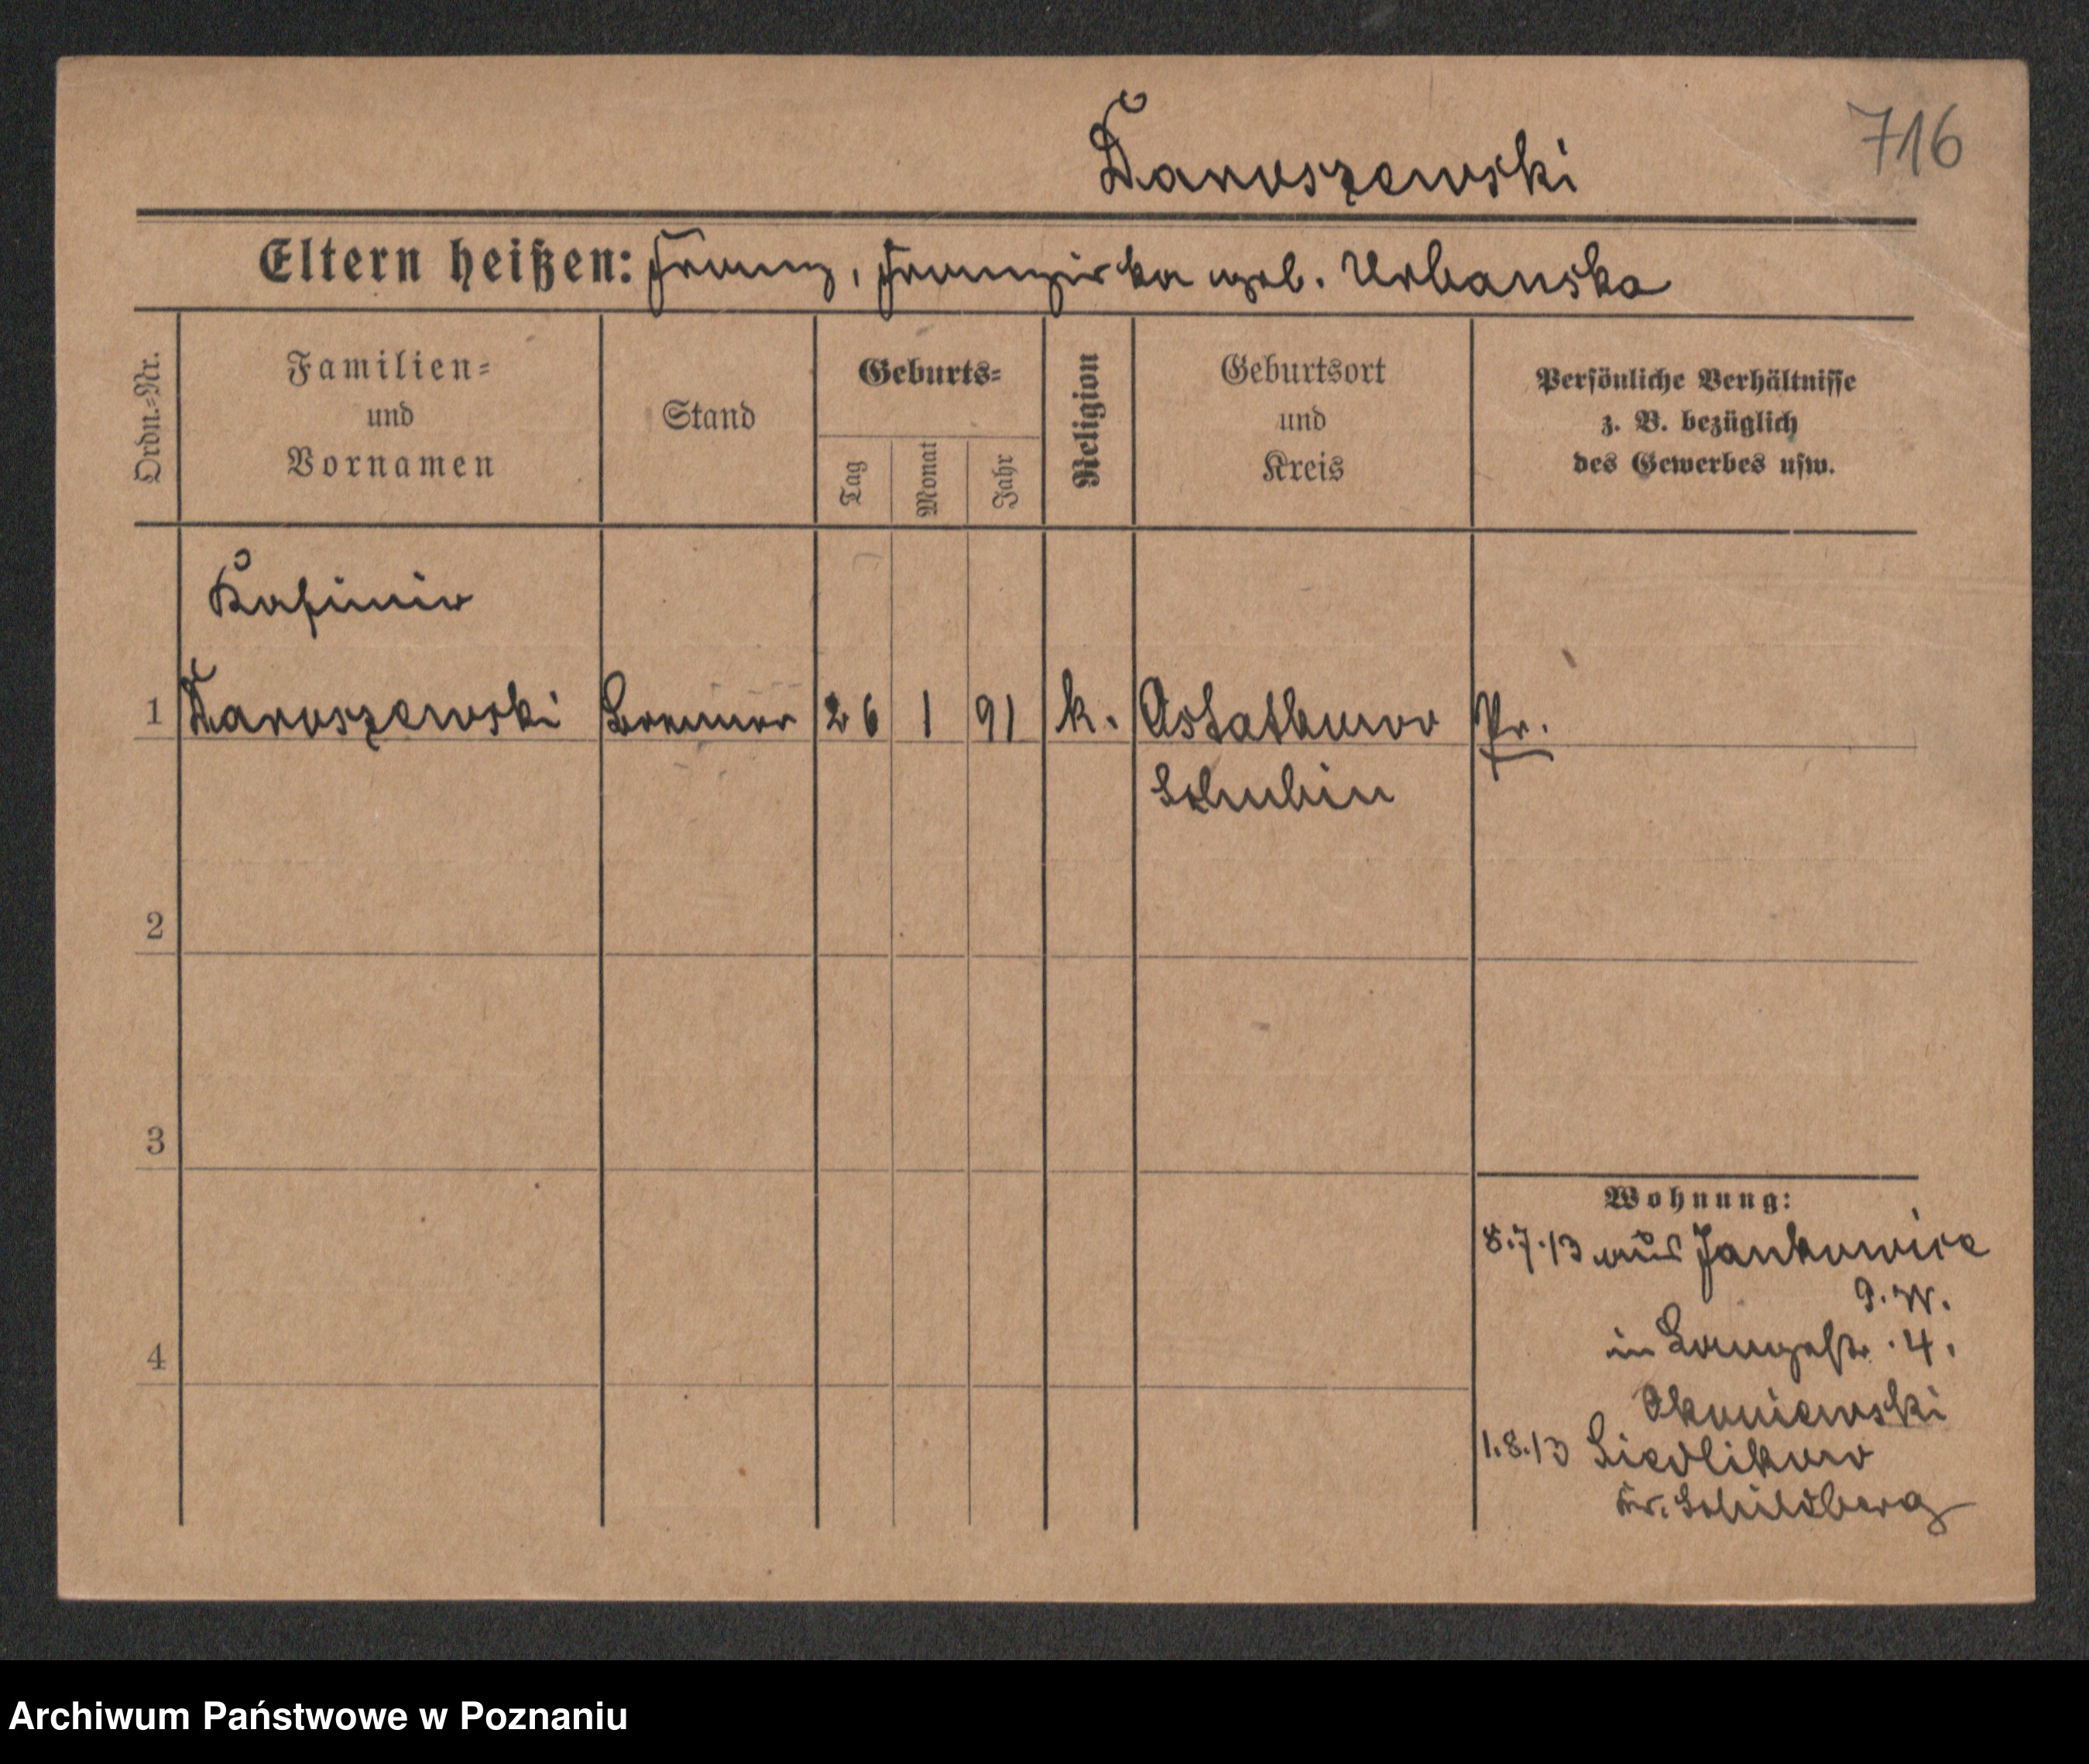 Daruszewski
716
Eltern heißen: Franz, Franziska geb. Urbanska
Ordn.-Nr.
Familien-
und
Vornamen
Stand
Geburts-
Tag
Monat
Jahr
Religion
Geburtsort
und
Kreis
Persönliche Verhältnisse
z. B. bezüglich
des Gewerbes usw.
Kasimir
1 Daruszewski Brenner 26 1 91 k. Pr.
Schubin
2
3
4
Wohnung:
8.7.13 aus Jankowice
P. W.
in Langestr. 4.
Okoniewski
1.8.13 Siedlikow
Kr. Schildberg
Archiwum Państwowe w Poznaniu